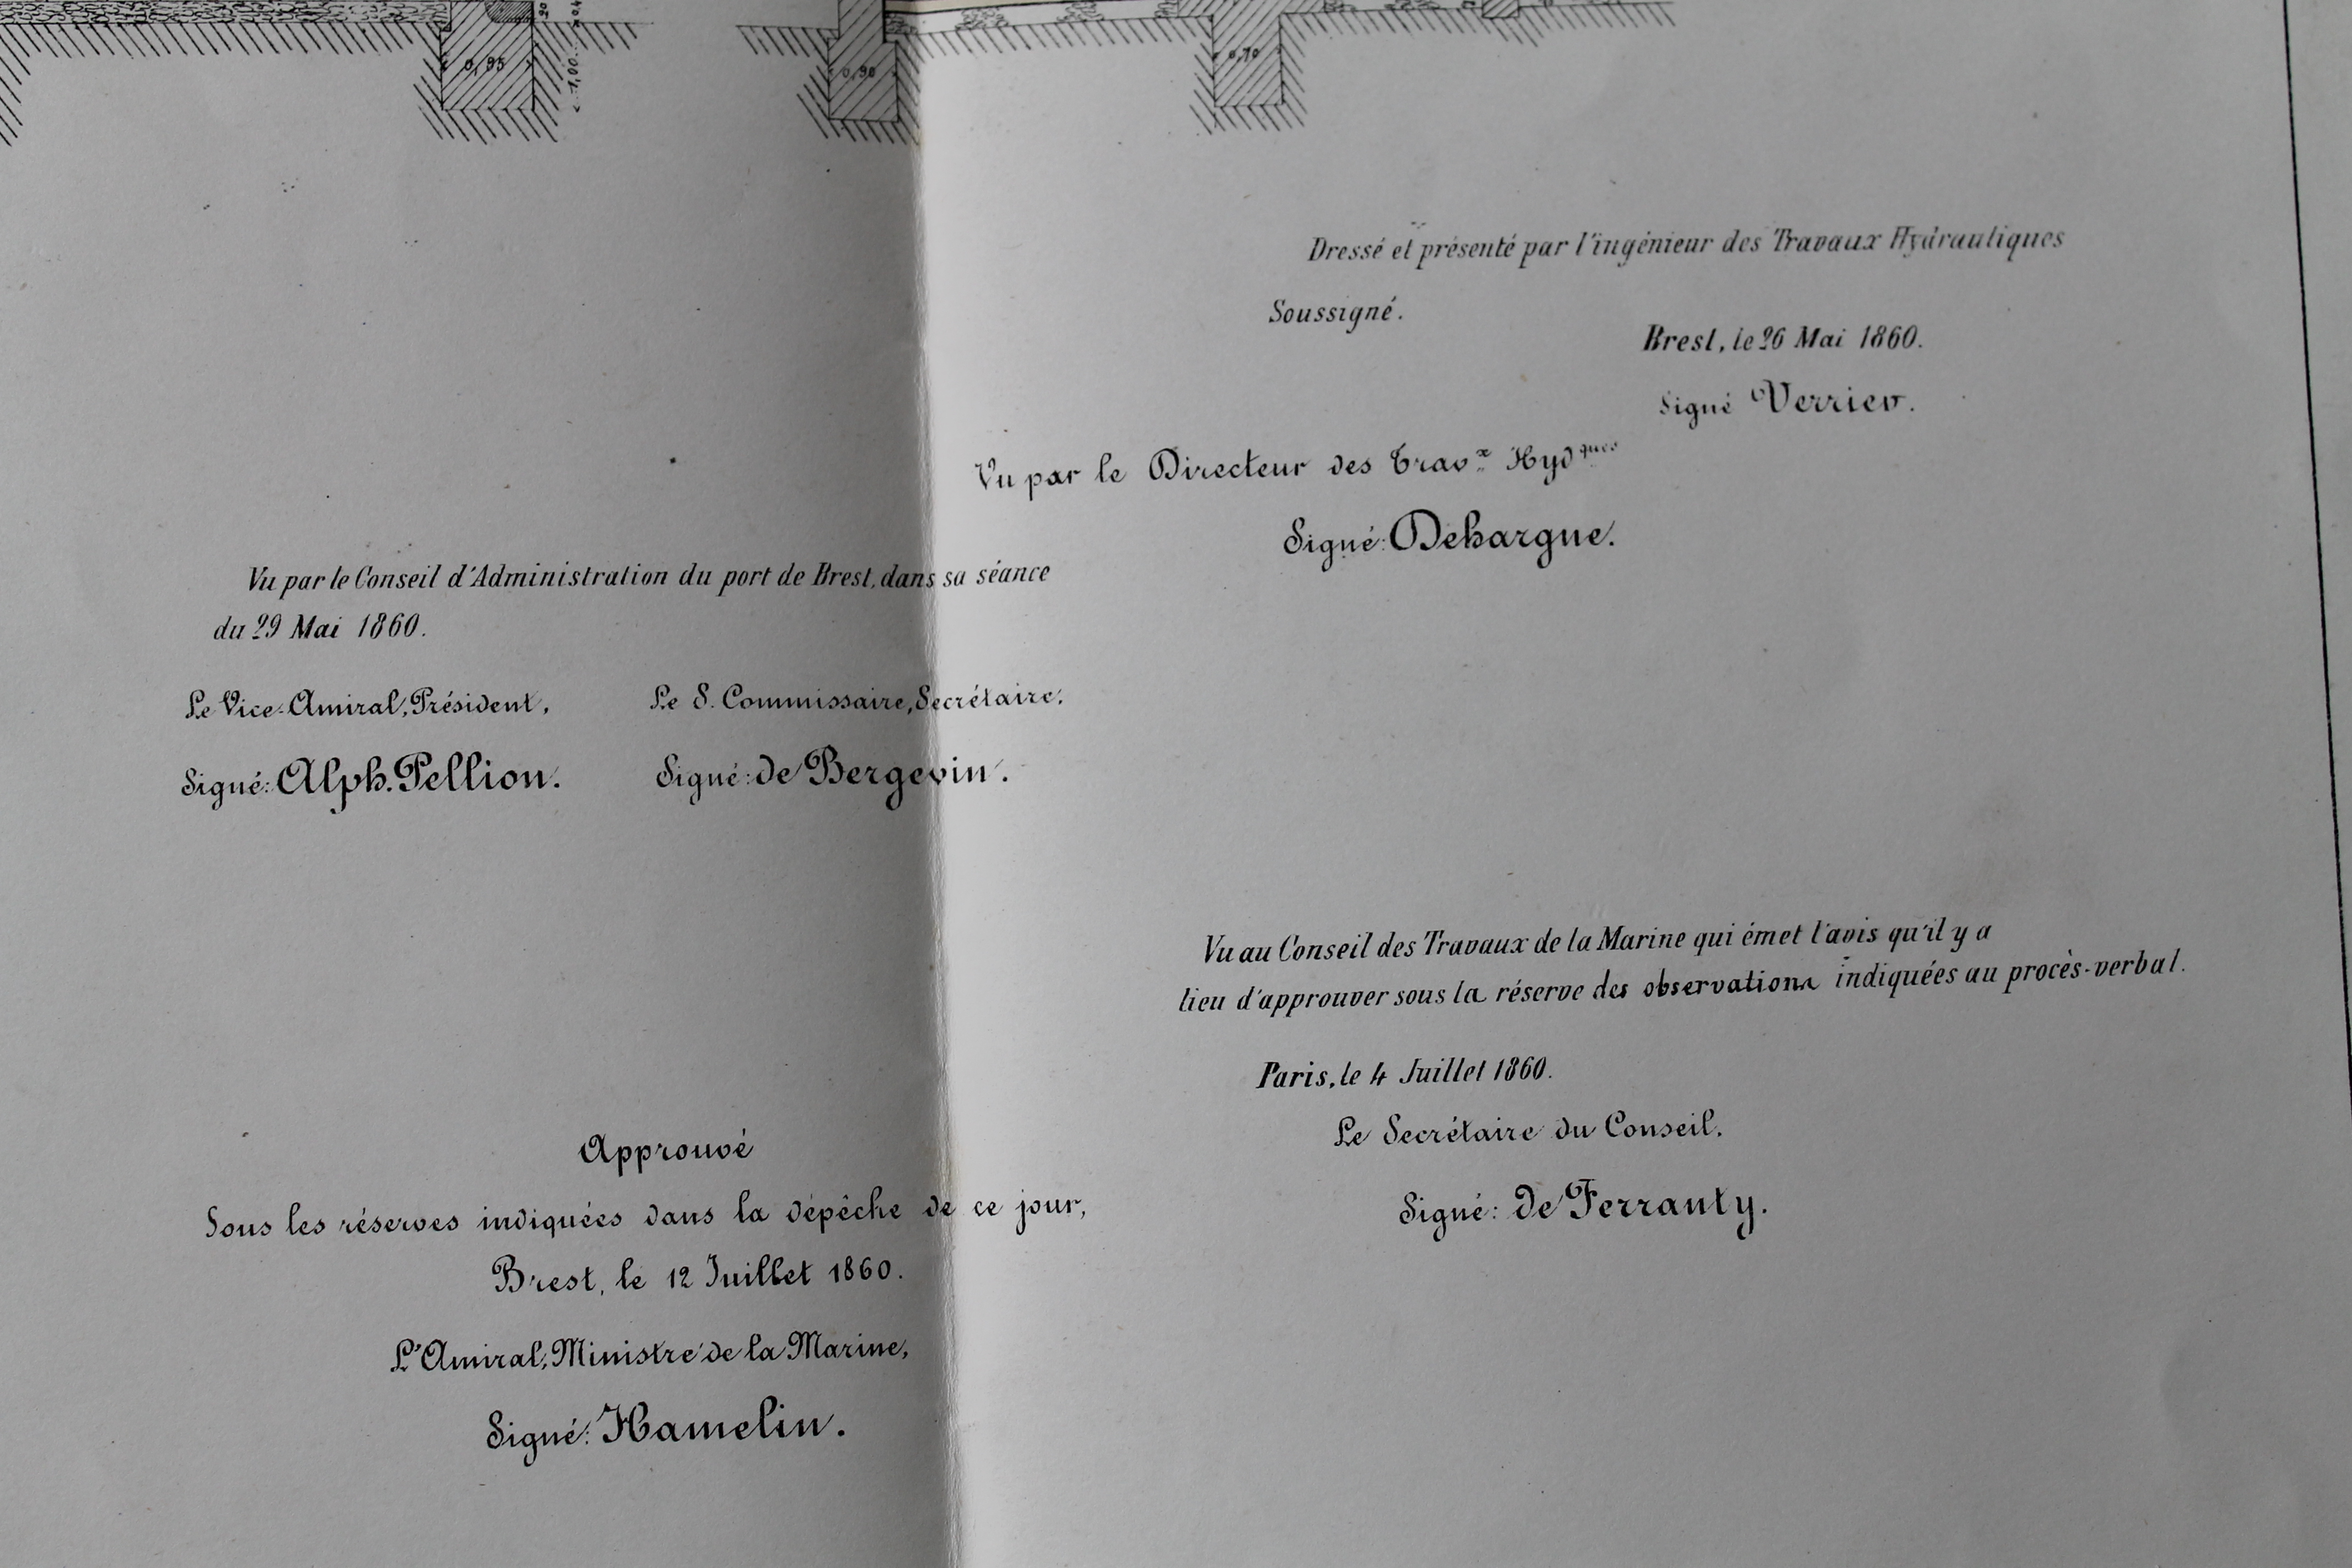 0,95
1,00
0,90
0,70
Dressé et présenté par l'ingénieur des Travaux Hydrauliques
Soussigné.
Brest, le 26 Mai 1860.
Signé Verrier.
Vu par le Directeur des Travx Hydques
Signé: Dehargne.
Vu par le Conseil d'Administration du port de Brest, dans sa séance
du 29 Mai 1860.
Le Vice-Amiral, Président,
Le S. Commissaire, Secrétaire,
Signé: Alph. Pellion.
Signé: de Bergevin.
Vu au Conseil des Travaux de la Marine qui émet l'avis qu'il y a
lieu d'approuver sous la réserve des observations indiquées au procès-verbal.
Paris, le 4 Juillet 1860.
Le Secrétaire du Conseil,
Signé: de Ferranty.
Approuvé
Sous les réserves indiquées dans la dépêche de ce jour,
Brest, le 12 Juillet 1860.
L'Amiral, Ministre de la Marine,
Signé: Hamelin.